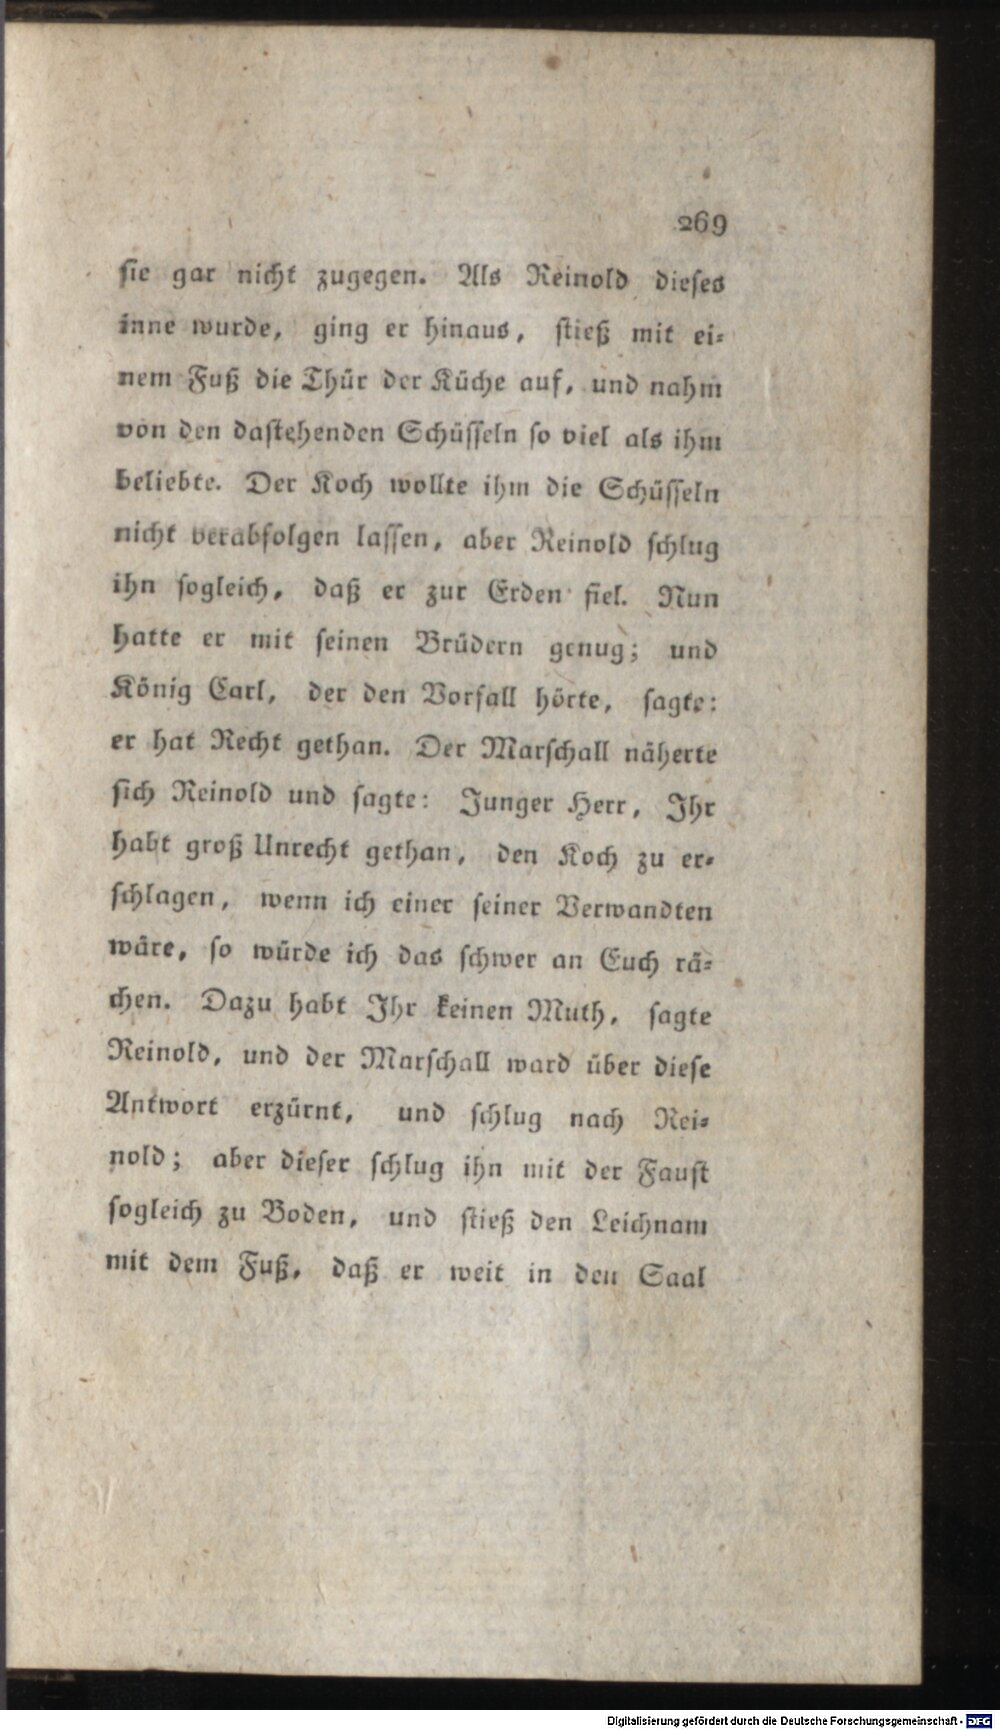 269
sie gar nicht zugegen. Als Reinold dieses
inne wurde, ging er hinaus, stieß mit ei-
nem Fuß die Thür der Küche auf, und nahm
von den dastehenden Schüsseln so viel als ihm
beliebte. Der Koch wollte ihm die Schüsseln
nicht verabfolgen lassen, aber Reinold schlug
ihn sogleich, daß er zur Erden fiel. Nun
hatte er mit seinen Brüdern genug; und
König Carl, der den Vorfall hörte, sagte:
er hat Recht gethan. Der Marschall näherte
sich Reinold und sagte: Junger Herr, Ihr
habt groß Unrecht gethan, den Koch zu er-
schlagen, wenn ich einer seiner Verwandten
wäre, so würde ich das schwer an Euch rä-
chen. Dazu habt Ihr keinen Muth, sagte
Reinold, und der Marschall ward über diese
Antwort erzürnt, und schlug nach Rei-
nold; aber dieser schlug ihn mit der Faust
sogleich zu Boden, und stieß den Leichnam
mit dem Fuß, daß er weit in den Saal
Digitalisierung gefördert durch die Deutsche Forschungsgemeinschaft - DFG